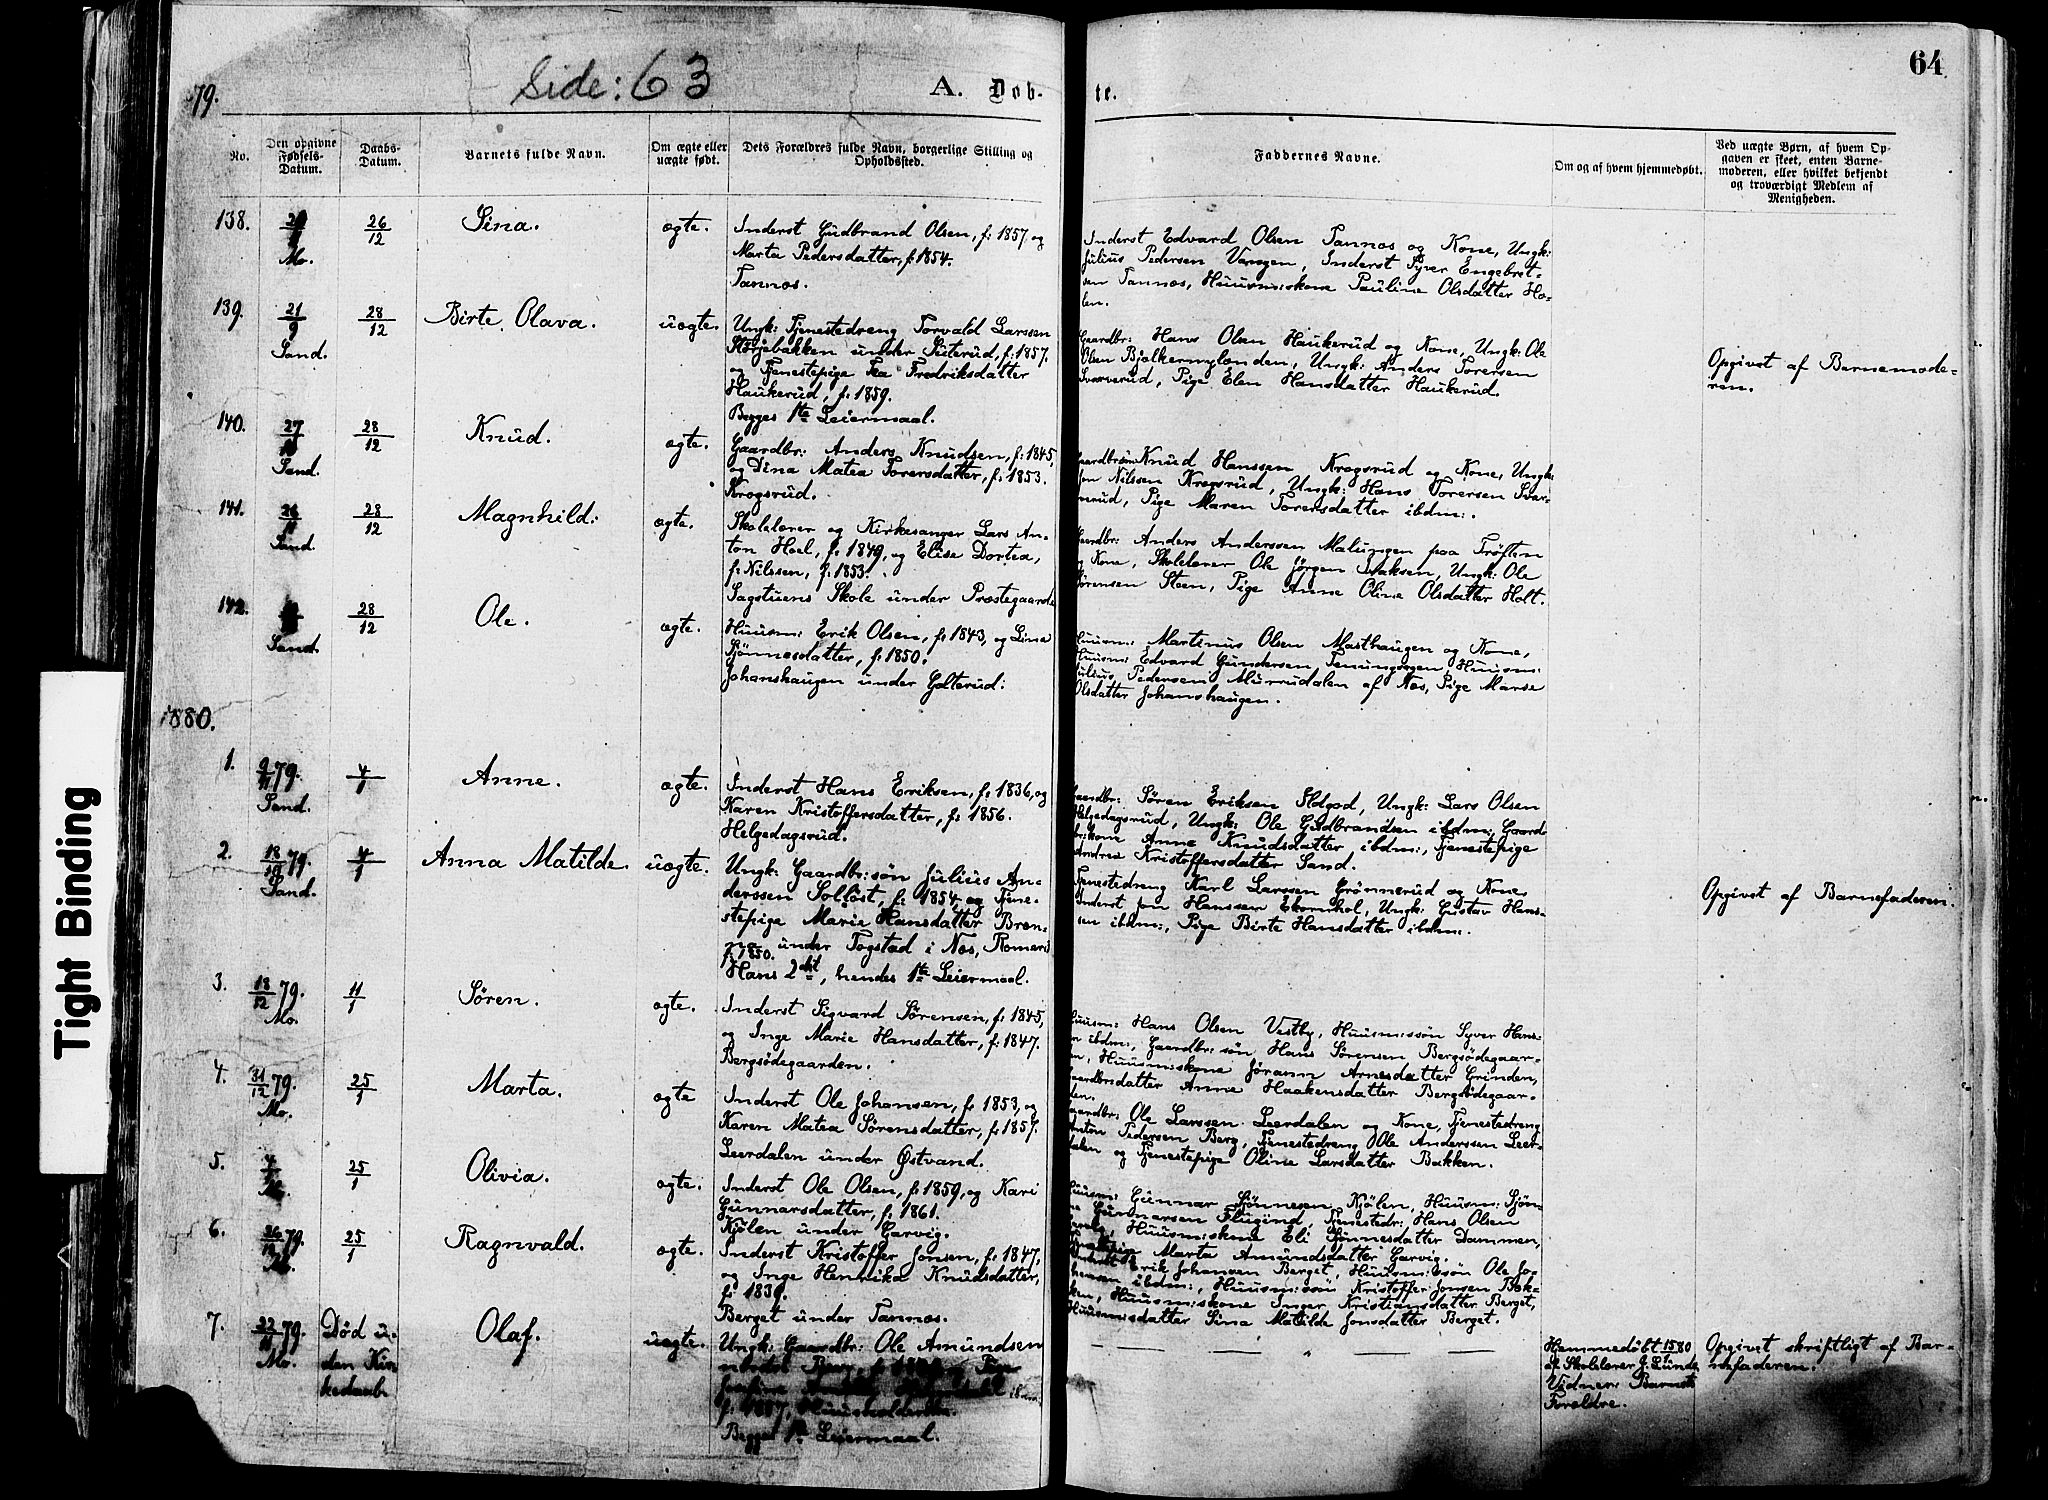 Side: 63
64
79.
A. Døb-
te.
No.
Den opgivne Fødsels-Datum.
Daabs-Datum.
Barnets fulde Navn.
Om ægte eller uægte født.
Dets Forældres fulde Navn, borgerlige Stilling og Opholdssted.
Faddernes Navne.
Om og af hvem hjemmedøbt.
Ved uægte Børn, af hvem Op-
gaven er skeet, enten Barne-
moderen, eller hvilket bekjendt
og troværdigt Medlem af
Menigheden.
138.
Mo.
26/12
Sina.
ægte.
Inderst Gudbrand Olsen, f: 1857 og
Marta Pedersdatter, f: 1854.
Tannæs.
Inderst Edvard Olsen Tannæs og Kone, Ungk:
Julius Pedersen, Inderst Syver Engebret-
sen Tannæs, Huusm:skone Pauline Olsdatter Ho-
len.
139.
21/9
Sand.
28/12
Birte Olava.
uægte.
Ungk: Tjenestedreng Torvald Larssen
Störjebakken under Suterud, f: 1857.
og Tjenestepige Fredriksdatter
Haukerud, f: 1859.
Begges 1ste Leiermaal.
Gaardbr: Hans Olsen Haukerud og Kone, Ungk: Ole
Olsen, Ungk: Anders Torersen
Sværverud, Pige Elen Hansdatter Haukerud.
Opgivet af Barnemode-
ren.
140.
27
Sand.
28/12
Knud.
ægte.
Gaardbr: Anders Knudsen, f: 1845,
og Dina Matea Torersdatter, f: 1853.
Krogsrud.
Knud Hanssen Krogsrud og Kone, Ungk:
Nilssen Krogsrud, Ungk: Hans Torersen Svær-
verud, Pige Maren Torersdatter ibdm:.
141.
Sand.
28/12
Magnhild.
ægte.
Skolelærer og Kirkesanger Lars An-
ton Hoel, f: 1849, og Elise Dortea,
f: Nilssen, f: 1853.
Sagstuens Skole under Præstegaarde
Gaardbr: Anders Anderssen Malungen paa Tröften
og Kone, Skolelærer Ole Jörgen Isaksen, Ungk: Ole
Sörensen Steen, Pige Anne Oline Olsdatter Holt.
142.
Sand.
28/12
Ole.
ægte.
Huusm: Erik Olsen, f: 1843, og Lina
Sjönnesdatter, f: 1850.
Johanshaugen under Golterud:
Huusm: Martinus Olsen Masthaugen og Kone,
Huusm: Edvard Gundersen, Huusm:
Julius Pedersen Murrudalen af Næs, Pige Marte
Olsdatter Johanshaugen.
1880.
1.
9/11 79.
Sand.
4/1
Anne.
ægte.
Inderst Hans Eriksen, f: 1836, og
Karen Kristoffersdatter, f: 1856.
Helgedagsrud.
Gaardbr: Sören Eriksen, Ungk: Lars Olsen
Helgedagsrud, Ungk: Ole Gudbrandsen ibdm:, Gaard-
br:kone Anne Knudsdatter ibdm:, Tjenestepige
Andrea Kristoffersdatter Sand.
2.
18/10 79.
Sand.
4/1
Anna Matilde
uægte.
Ungk: Gaardbr:sön Julius An-
derssen Solföst, f: 1854, og Tjene-
stepige Marie Hansdatter Bræn-
under Togstad i Næs, Romeri
f: 1850.
Hans 2det, hendes 1ste Leiermaal.
Tjenestedreng Karl Larssen Grönnerud og Kone,
Inderst Jon Hanssen Ekornhol, Ungk: Gustav Hans-
sen ibdm:, Pige Birte Hansdatter ibdm:.
Opgivet af Barnefaderen.
3.
18/12 79.
Mo.
11/1
Sören.
ægte.
Inderst Sigvard Sörensen, f: 1845,
og Inge Marie Hansdatter, f: 1847.
Bergsödegaarden.
Huusm: Hans Olsen Vestby, Huusm:sön Syver Hans-
sen ibdm:, Gaardbr:sön Hans Sörensen Bergsödegaar-
den, Huusm:skone Jörann Arnesdatter Grinden,
Gaardbrsdatter Anne Haakensdatter Bergsödegaar-
den.
4.
31/12 79.
Mo.
25/1
Marta.
ægte
Inderst Ole Johansen, f: 1853, og
Karen Matea Sörensdatter, f: 1857.
Leerdalen under Østvand.
Gaardbr: Ole Larssen Leerdalen og Kone, Tjenestedreng
Anton Pedersen Berg, Tjenestedreng Ole Anderssen Leer-
dalen og Tjenestepige Oline Larsdatter Bakken.
5.
Mo.
25/1
Olivia.
ægte.
Inderst Ole Olsen, f: 1859, og Kari
Gunnarsdatter, f: 1861.
Kjölen under Garvig.
Huusm: Gunnar Sjönnesen Kjölen, Huusm: Sjön-
ne Gunnarsen, Tjenestedr: Hans Olsen
Huusm:skone Eli Sjönnesdatter Dammen,
Marta Amundsdatter Garvig.
6.
26/12 79.
Mo.
25/1
Ragnvald.
ægte.
Inderst Kristoffer Jonsen, f: 1847,
og Inge Henrika Knudsdatter,
f: 1839.
Berget under Tannæs.
Erik Johansen Berget, Huusm:sön Ole Jo-
hansen ibdm:, Huusm:sön Kristoffer Jonsen Bak-
ken, Huusm:skone Inger Kristiansdatter Berget,
Huusm:sdatter Sina Matilde Jonsdatter Berget.
7.
22/11 79.
Mo.
Död u-
den Kir-
kedaab.
Olaf.
uægte.
Ungk: Gaardbr: Ole Amundsen
f: 1857, Huusholderske.
Begges 1ste Leiermaal.
Hjemmedöbt
af Skolelærer J. Lunde
Vidner: Barnets
Forældre.
Opgivet skriftligt af Bar-
nefaderen.
Tight Binding